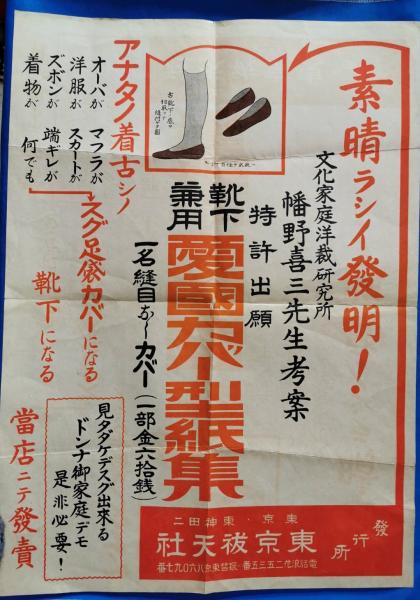 素晴ラシイ發明!
文化家庭洋裁研究所
幡野喜三先生考案
特許出願
靴下
兼用
愛國カバー型紙集
一名縫目なしカバー(一部金六拾銭)
アナタノ着古シノ
オーバが マフラが
洋服が スカートが
ズボンが 端ギレが
着物が 何でも
スグ足袋カバーになる
靴下になる
見タダケデスグ出來る
ドンナ御家庭デモ
是非必要!
當店ニテ發賣
發行所
東京・東神田二
東京祓天社
電話浪花二五三五番・振替東京八六〇九七番